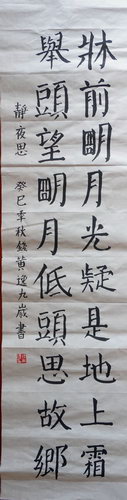 牀前朙月光疑是地上霜
舉頭望朙月低頭思故鄉
靜夜思
癸巳年秋錄黃逸九歲書